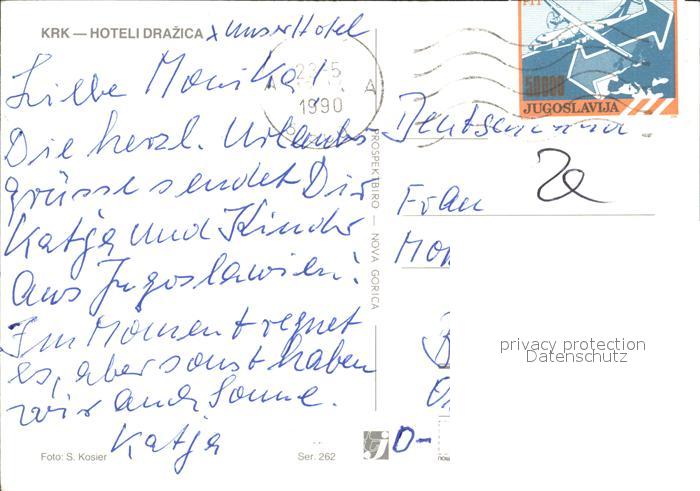 KRK — HOTELI DRAŽICA x unser Hotel
Liebe Monika!
Die herzl. Urlaubs
grüsse sendet Dir
Katja und Kinder
aus Jugoslawien!
Im Moment regnet
es, aber sonst haben
wir auch Sonne.
Katja
Foto: S. Kosier
Ser. 262
1990
A
PROSPEKTBIRO — NOVA GORICA
PTT
50000
JUGOSLAVIJA
Deutschland
Frau
Mon
D-
privacy protection
Datenschutz